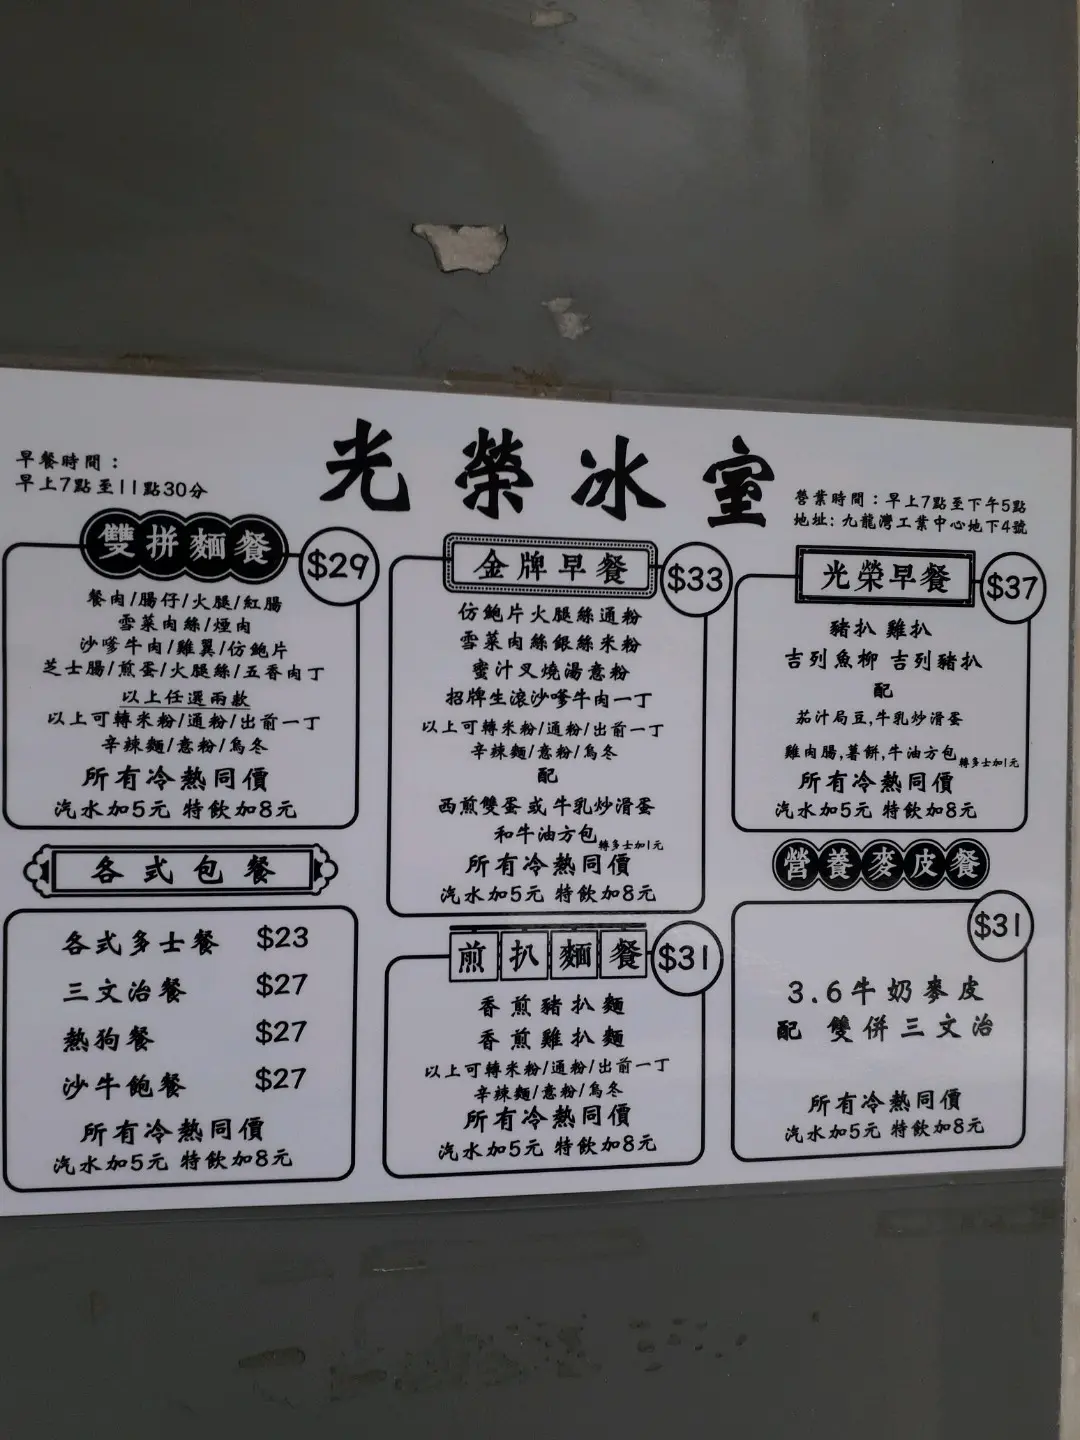 光榮冰室
早餐時間：
早上7點至11點30分
營業時間：早上7點至下午5點
地址: 九龍灣工業中心地下4號
雙拼麵餐 $29
餐肉/腸仔/火腿/紅腸
雪菜肉絲/煙肉
沙嗲牛肉/雞翼/仿鮑片
芝士腸/煎蛋/火腿絲/五香肉丁
以上任選兩款
以上可轉米粉/通粉/出前一丁
辛辣麵/意粉/烏冬
所有冷熱同價
汽水加5元 特飲加8元
各式包餐
各式多士餐 $23
三文治餐 $27
熱狗餐 $27
沙牛飽餐 $27
所有冷熱同價
汽水加5元 特飲加8元
金牌早餐 $33
仿鮑片火腿絲通粉
雪菜肉絲銀絲米粉
蜜汁叉燒湯意粉
招牌生滾沙嗲牛肉一丁
以上可轉米粉/通粉/出前一丁
辛辣麵/意粉/烏冬
配
西煎雙蛋 或 牛乳炒滑蛋
和牛油方包轉多士加1元
所有冷熱同價
汽水加5元 特飲加8元
煎扒麵餐 $31
香煎豬扒麵
香煎雞扒麵
以上可轉米粉/通粉/出前一丁
辛辣麵/意粉/烏冬
所有冷熱同價
汽水加5元 特飲加8元
光榮早餐 $37
豬扒 雞扒
吉列魚柳 吉列豬扒
配
茄汁局豆,牛乳炒滑蛋
雞肉腸,薯餅,牛油方包轉多士加1元
所有冷熱同價
汽水加5元 特飲加8元
營養麥皮餐
$31
3.6牛奶麥皮
配 雙併三文治
所有冷熱同價
汽水加5元 特飲加8元